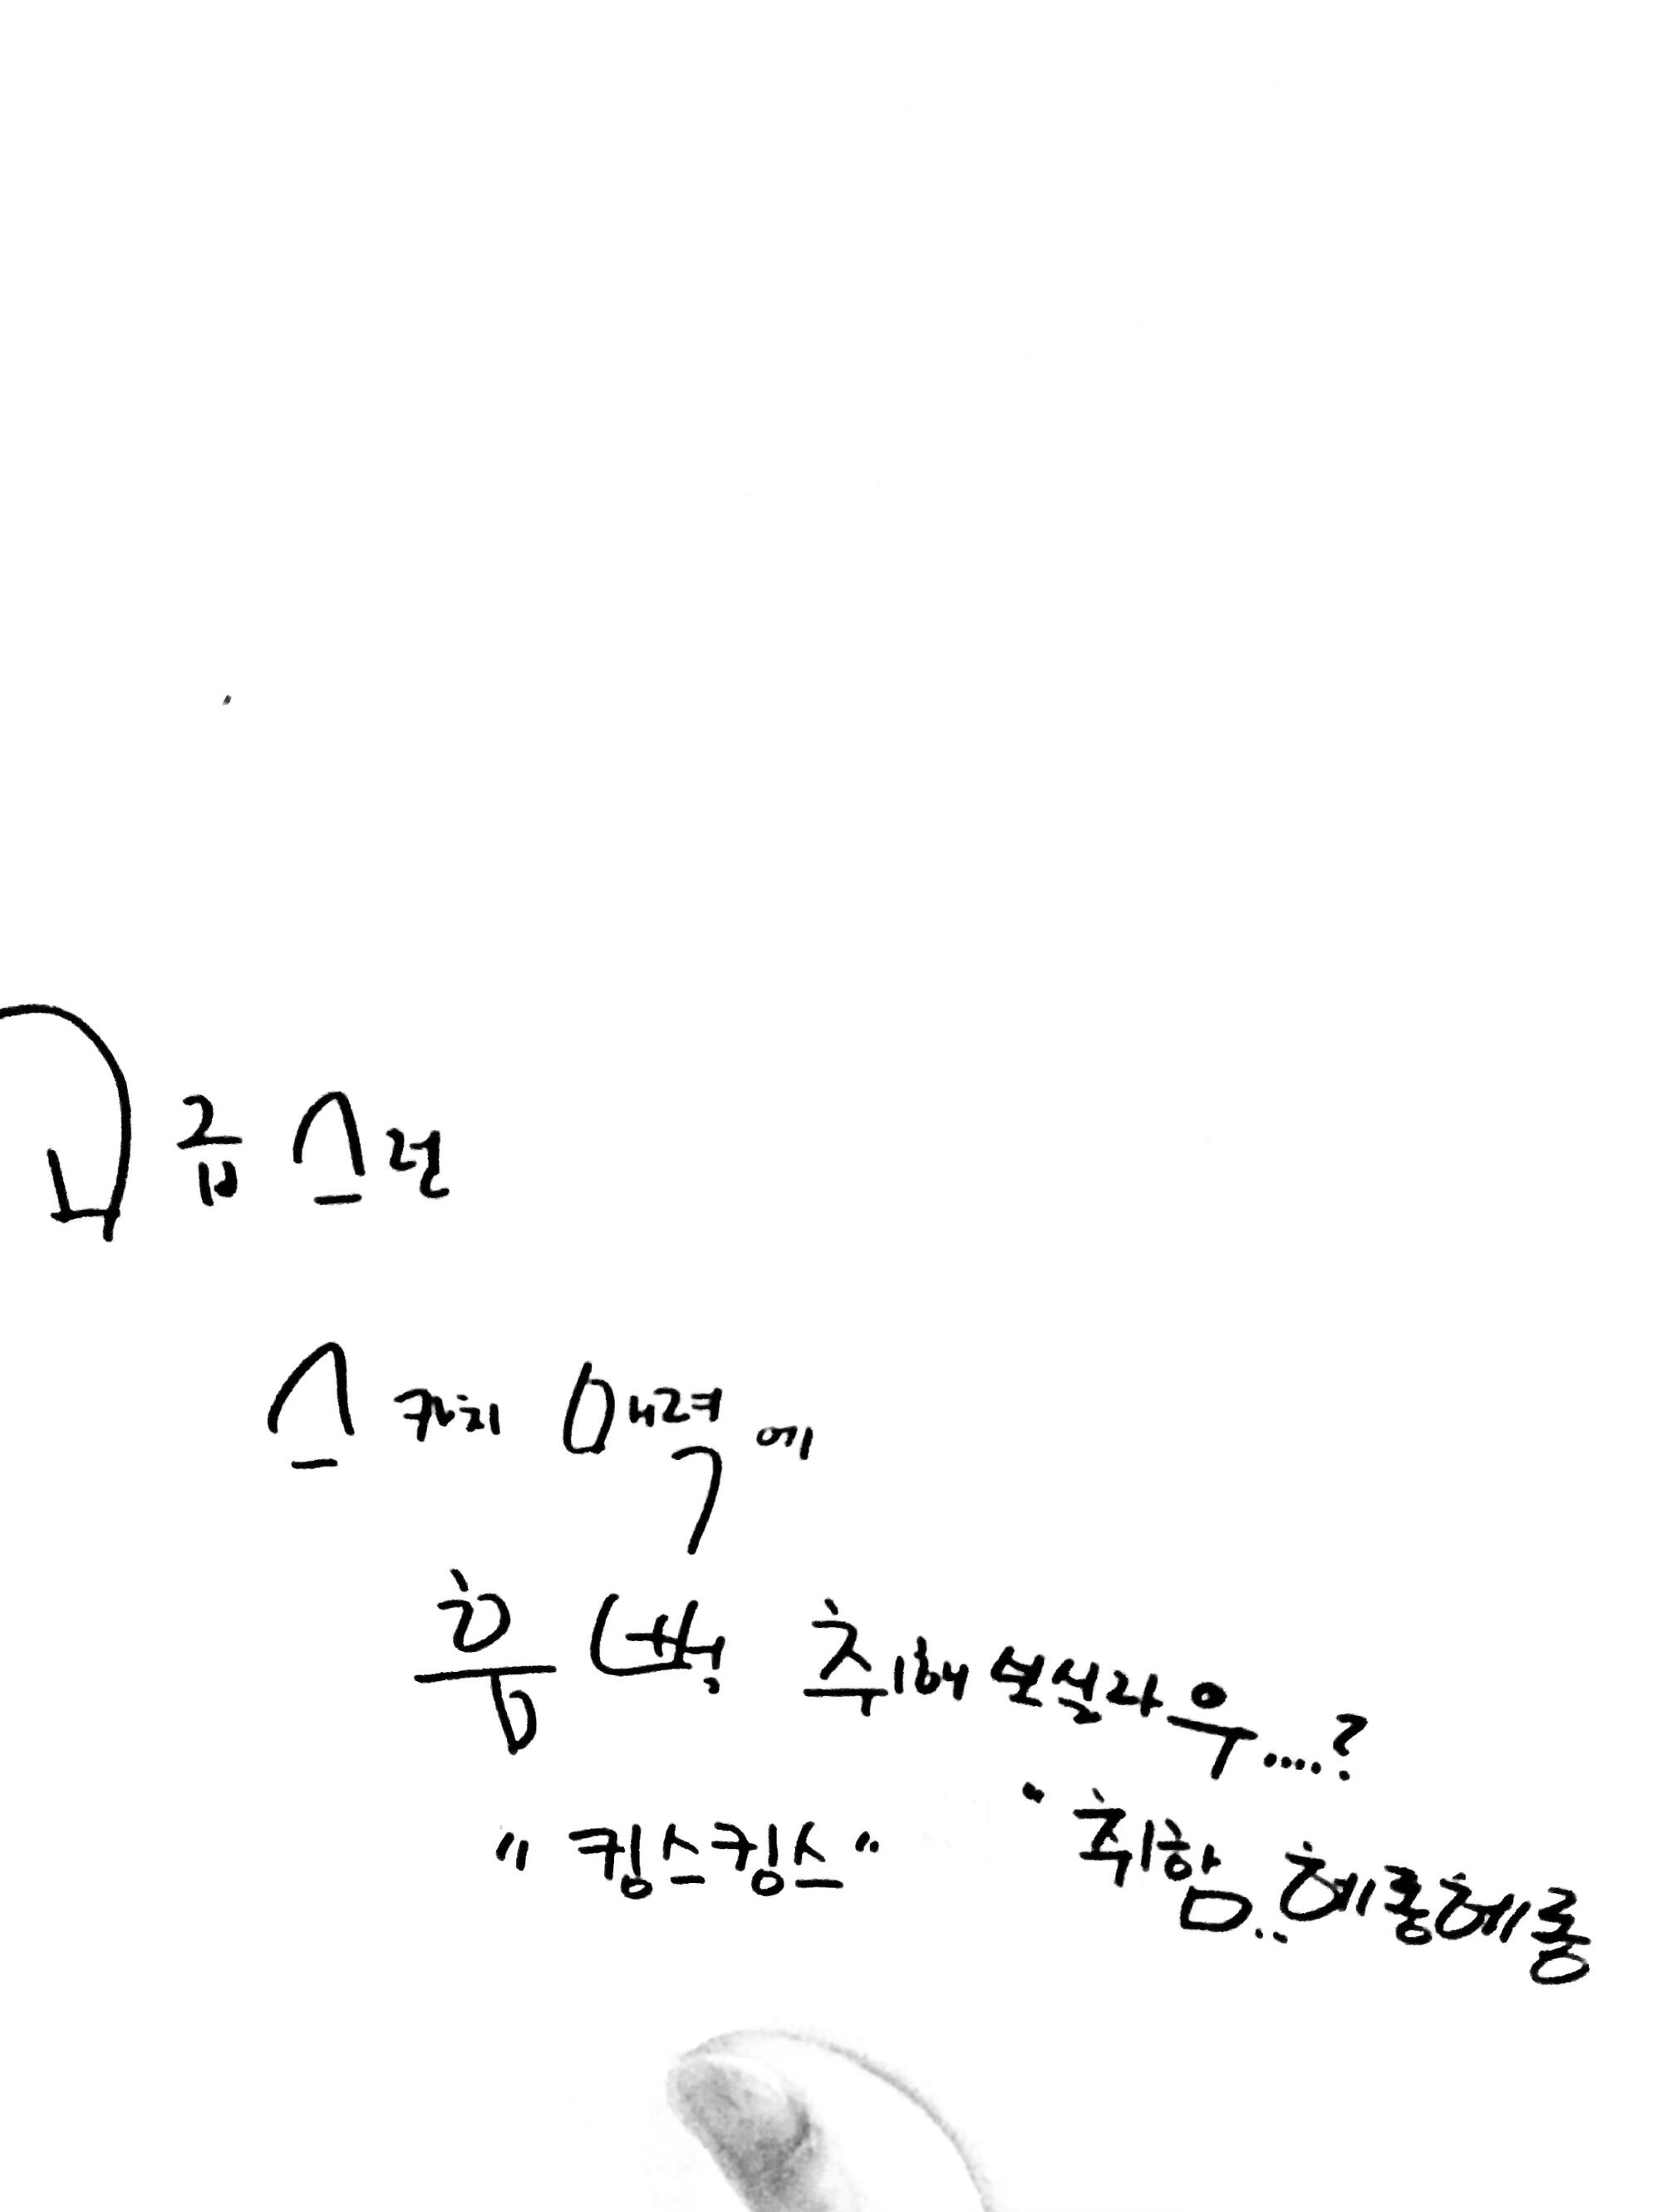 고급스런
스카치 매력에
흠뻑 취해보실라우....?
"킹스킹스" "취함..헤롱헤롱